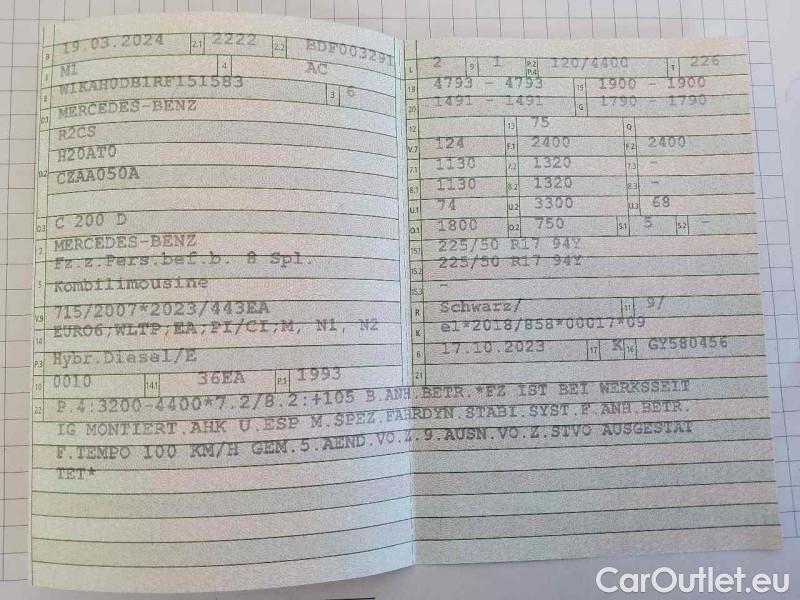 B 19.03.2024 2.1 2222 2.2 BDF003291
J M1 4 AC
E W1KAH0DB1RF151583 3 6
D.1 MERCEDES-BENZ
R2CS
D.2 H20AT0
CZAA050A
D.3 C 200 D
2 MERCEDES-BENZ
5 Fz.z.Pers.bef.b. 8 Spl.
Kombilimousine
V.9 715/2007*2023/443EA
14 EURO6;WLTP;EA;PI/CI;M, N1, N2
P.3 Hybr.Diesel/E
10 0010 14.1 36EA P.1 1993
L 2 9 1 P.2 P.4 120/4400 T 226
18 4793 - 4793 19 1900 - 1900
20 1491 - 1491 G 1790 - 1790
12 13 75 Q
V.7 124 F.1 2400 F.2 2400
7.1 1130 7.2 1320 7.3 -
8.1 1130 8.2 1320 8.3 -
U.1 74 U.2 3300 U.3 68
O.1 1800 O.2 750 S.1 5 S.2 -
15.1 225/50 R17 94Y
15.2 225/50 R17 94Y
15.3 -
R Schwarz/ 11 9/
K e1*2018/858*00017*09
6 17.10.2023 17 K 16 GY580456
21
22 P.4:3200-4400*7.2/8.2:+105 B.ANH.BETR.*FZ IST BEI WERKSSEIT
IG MONTIERT.AHK U.ESP M.SPEZ.FAHRDYN.STABI.SYST.F.ANH.BETR.
F.TEMPO 100 KM/H GEM.5.AEND.VO.Z.9.AUSN.VO.Z.STVO AUSGESTAT
TET*
CarOutlet.eu